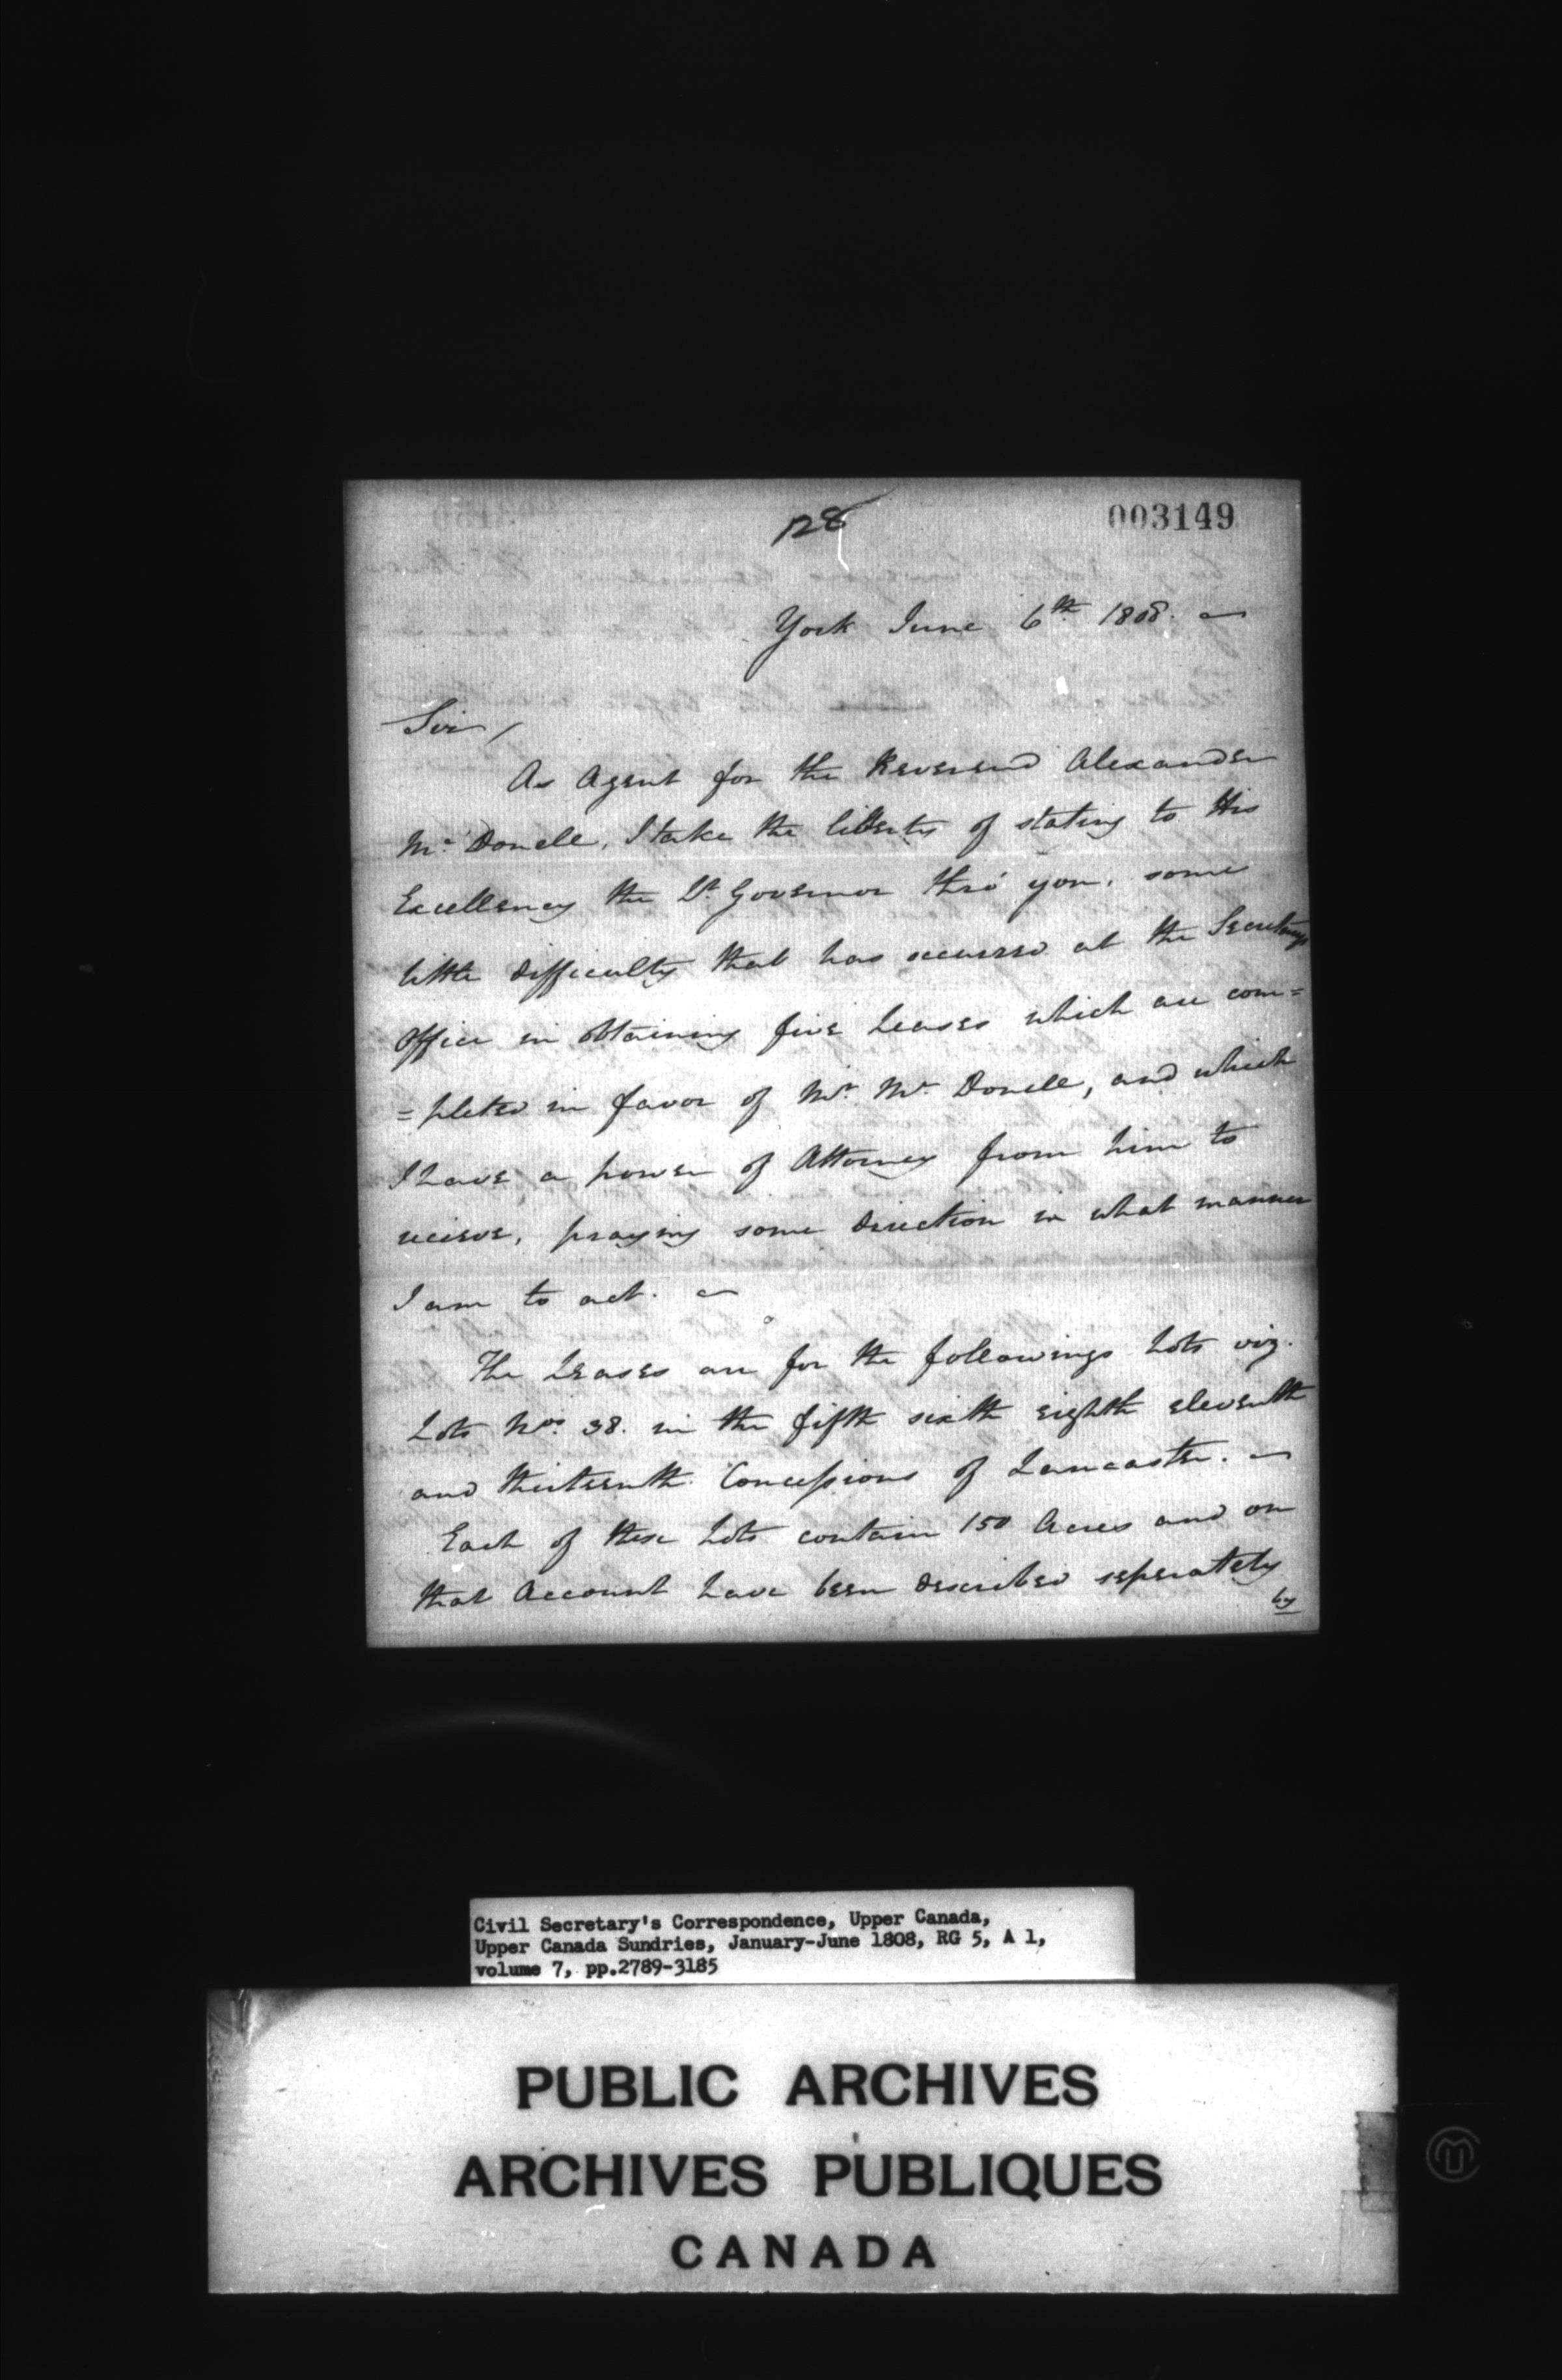 128
003149
York June 6th 1808.
Sir,
As Agent for the Reverend Alexander
Mc. Donell, I take the liberty of stating to His
Excellency the Lt. Governor thro' you, some
little difficulty that has occurred at the Secretarys
Office in obtaining five Leases which are com=
=pleted in favor of Mr. Mc. Donell, and which
I have a power of Attorney from him to
recieve, praying some direction in what manner
I am to act.
The Leases are for the followings Lots viz.
Lots Nos. 38. in the fifth sixth eighth eleventh
and thirteenth Concessions of Lancaster.
Each of these Lots contain 150 Acres and on
that Account have been described seperately
by
Civil Secretary's Correspondence, Upper Canada,
Upper Canada Sundries, January-June 1808, RG 5, A 1,
volume 7, pp.2789-3185
PUBLIC ARCHIVES
ARCHIVES PUBLIQUES
CANADA